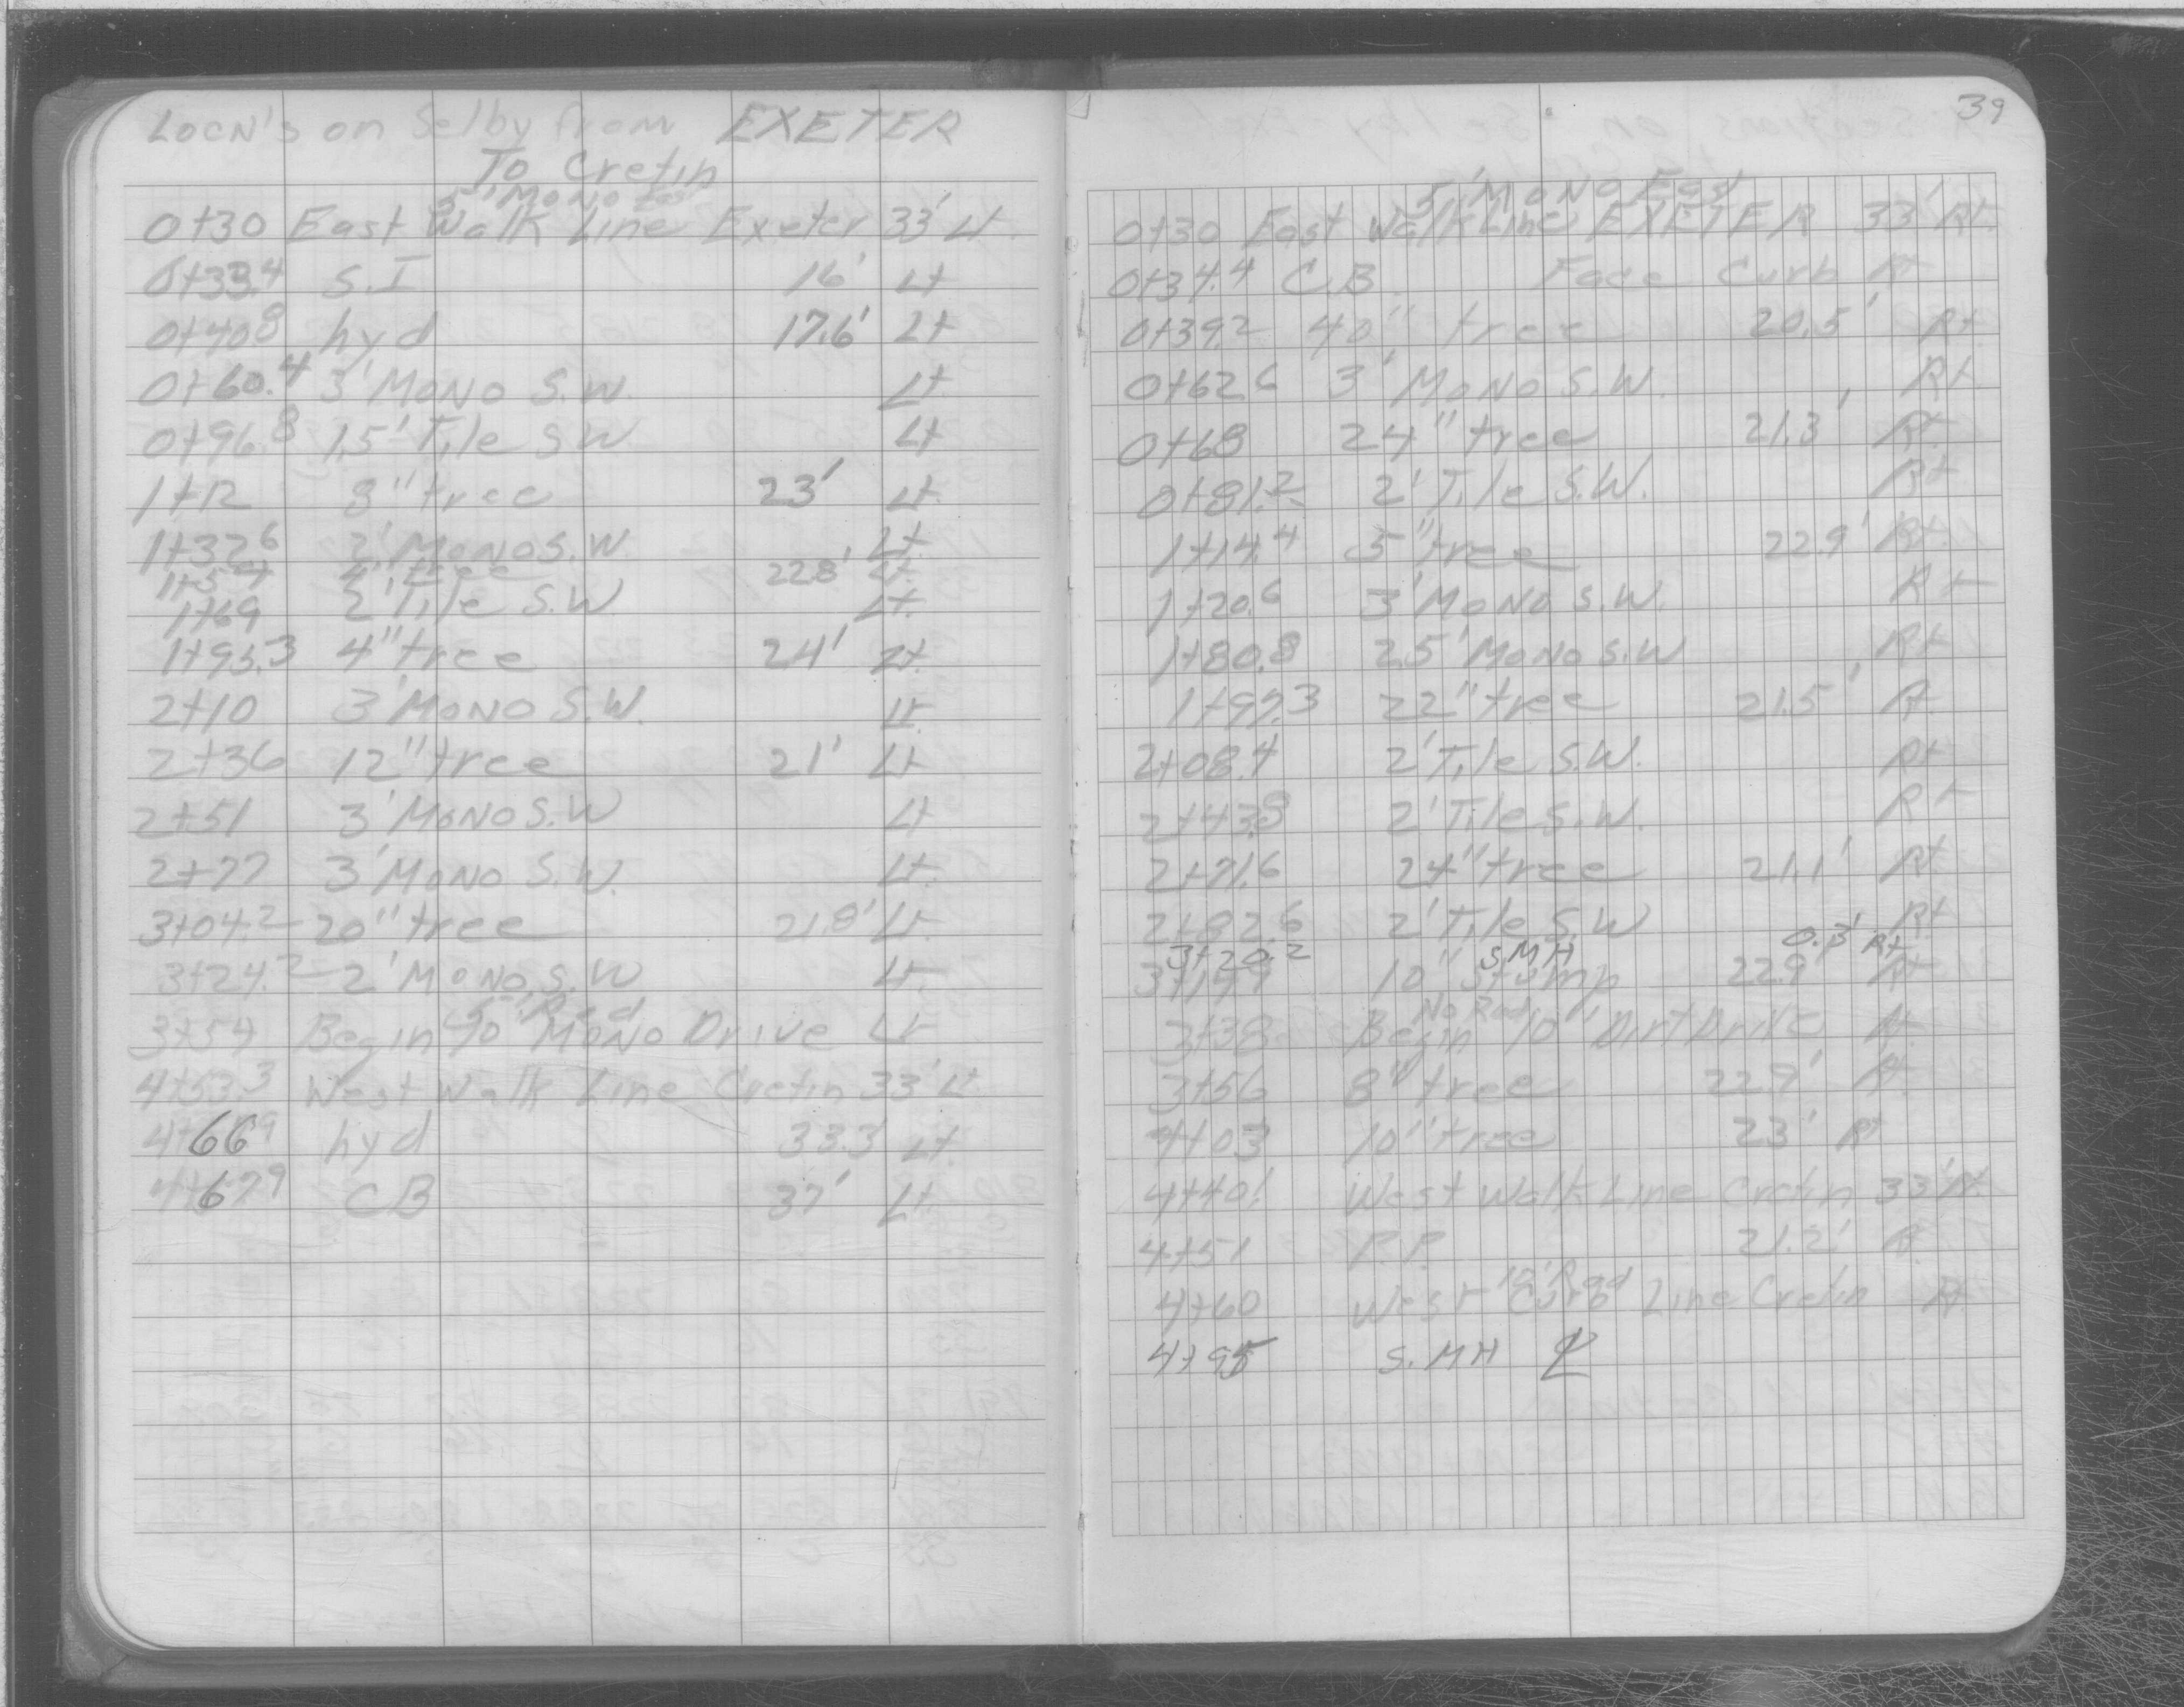 Locn's on Selby from EXETER
To Cretin
5' Mono East
0+30 East Walk Line Exeter 33' Lt.
0+33.4 S.I 16' Lt
0+40.8 hyd 17.6' Lt
0+60.4 3' MONO S.W. Lt.
0+96.8 1.5' Tile S.W Lt
1+12 8" tree 23' Lt.
1+32.6 2' MONO S.W. Lt.
4" tree 22.8' Lt.
1+69 2' Tile S.W Lt.
1+95.3 4" tree 24' Lt.
2+10 3' MONO S.W. Lt.
2+36 12" tree 21' Lt
2+51 3' MONO S.W Lt
2+77 3' MONO S.W. Lt.
3+04.2 20" tree 21.8' Lt.
3+24.2 2' MONO S.W Lt.
5' Rad
3+54 Begin 90" MONO Drive Lt
4+53.3 West Walk Line Cretin 33' Lt
4+66.9 hyd 33.3 Lt.
4+67.9 CB 37' Lt.
39
5' MONO East
0+30 East Walk Line EXETER 33' Rt.
0+34.4 C.B. Face Curb Rt
0+39.2 40" tree 20.5' Rt
0+62.6 3' MONO S.W. Rt.
0+68 24" tree 21.3' Rt.
0+81.2 2' Tile S.W. Rt
1+14.4 5" tree 22.9' Rt.
1+20.6 3' MONO S.W. Rt
1+80.8 2.5' MONO S.W Rt
1+97.3 22" tree 21.5' Rt.
2+08.4 2' Tile S.W. Rt
2+43.8 2' Tile S.W. Rt
2+71.6 24" tree 21.1' Rt.
2+82.6 2' Tile S.W Rt
3+20.2 S.MH 0.3' Rt
10" Stump 22.9' Rt
No Rad
3+38 Begin 10' Dirt Drive Rt.
3+56 8" tree 22.9' Rt.
4+03 10" tree 23' Rt
4+40.1 West Walk Line Cretin 33' Rt.
4+51 P.P. 21.2' Rt
10' Rad
4+60 West Curb Line Cretin Rt
4+95 S.MH ℄